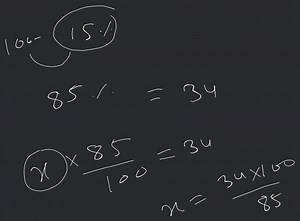 100- 15%
85% = 34
x × 85/100 = 34
x = 34×100/85